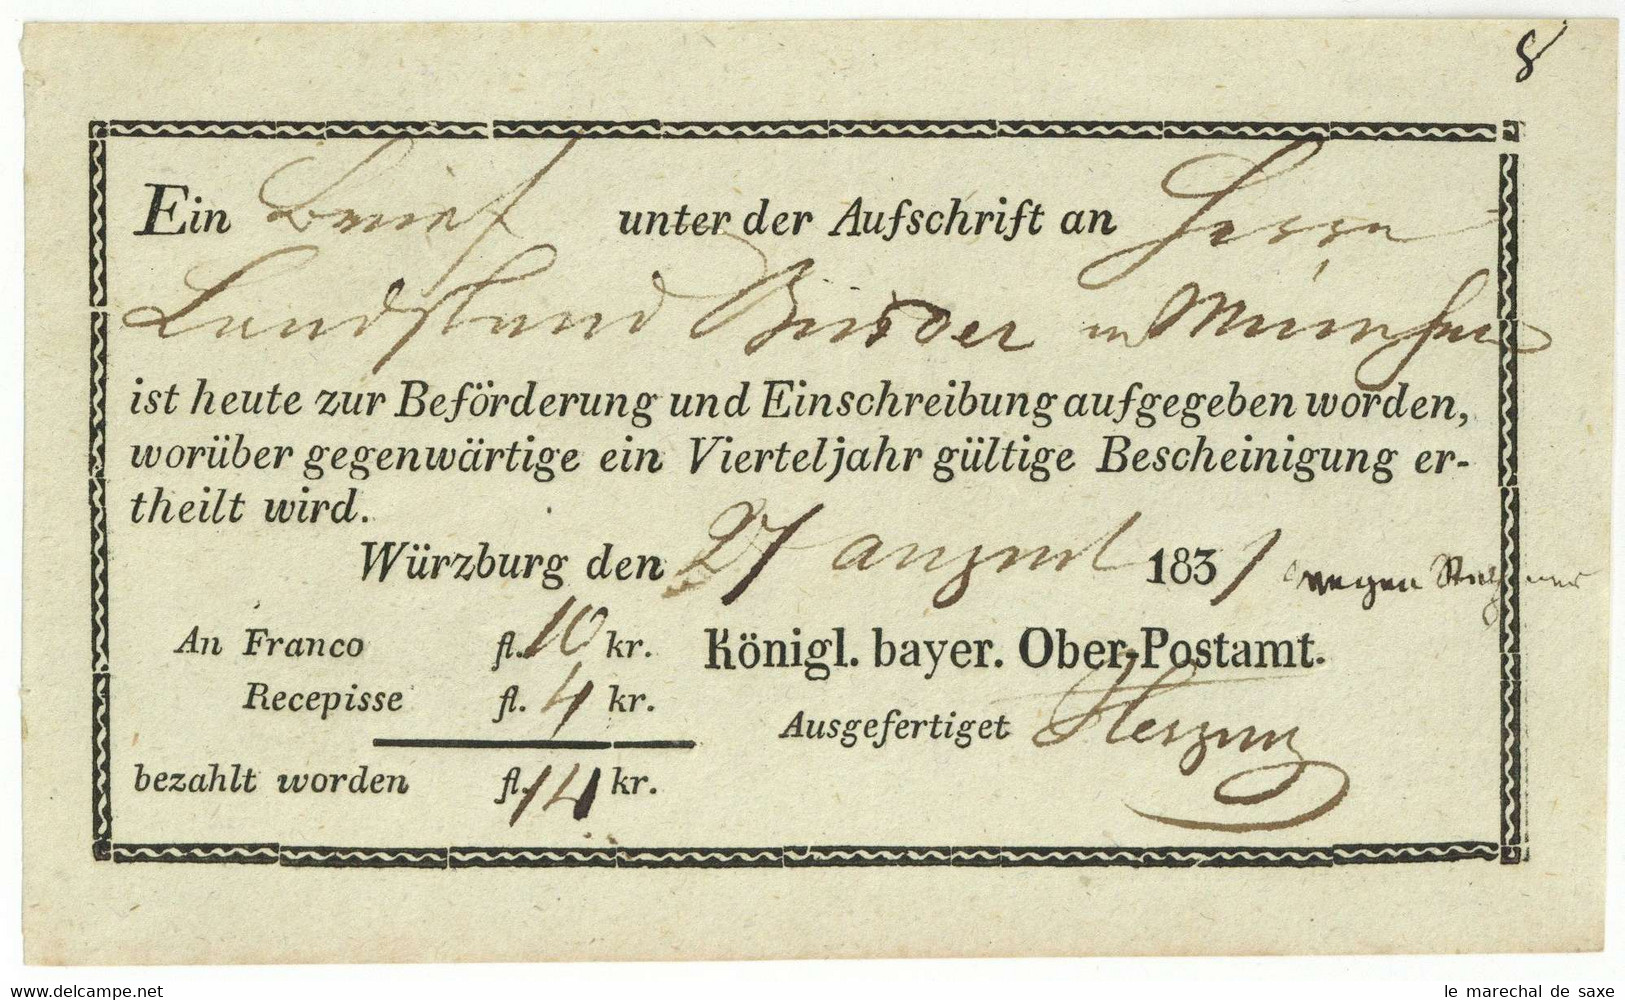 8
Ein Brief unter der Aufschrift an Herrn
Landstand Binder in München
ist heute zur Beförderung und Einschreibung aufgegeben worden,
worüber gegenwärtige ein Vierteljahr gültige Bescheinigung er-
theilt wird.
Würzburg den 27 August 1831 wegen
An Franco fl. 10 kr. Königl. bayer. Ober-Postamt.
Recepisse fl. 4 kr.
Ausgefertiget
bezahlt worden fl. 14 kr.
www.delcampe.net
le marechal de saxe